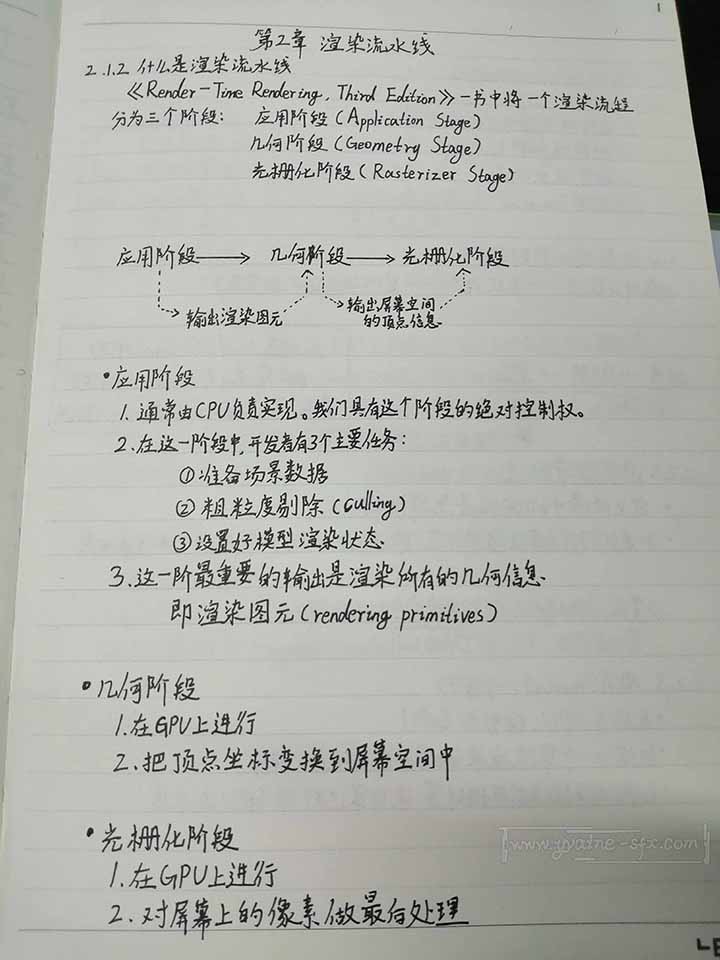 1
第2章 渲染流水线
2.1.2 什么是渲染流水线
《Render-Time Rendering, Third Edition》一书中将一个渲染流程
分为三个阶段: 应用阶段(Application Stage)
几何阶段(Geometry Stage)
光栅化阶段(Rasterizer Stage)
应用阶段 几何阶段 光栅化阶段
输出渲染图元 输出屏幕空间
的顶点信息.
•应用阶段
1. 通常由CPU负责实现。我们具有这个阶段的绝对控制权。
2. 在这一阶段中,开发者有3个主要任务:
①准备场景数据
②粗粒度剔除(culling)
③设置好模型渲染状态.
3. 这一阶最重要的输出是渲染所有的几何信息.
即渲染图元(rendering primitives)
•几何阶段
1.在GPU上进行
2.把顶点坐标变换到屏幕空间中
•光栅化阶段
1.在GPU上进行
2.对屏幕上的像素做最后处理
www.yvaine-sfx.com